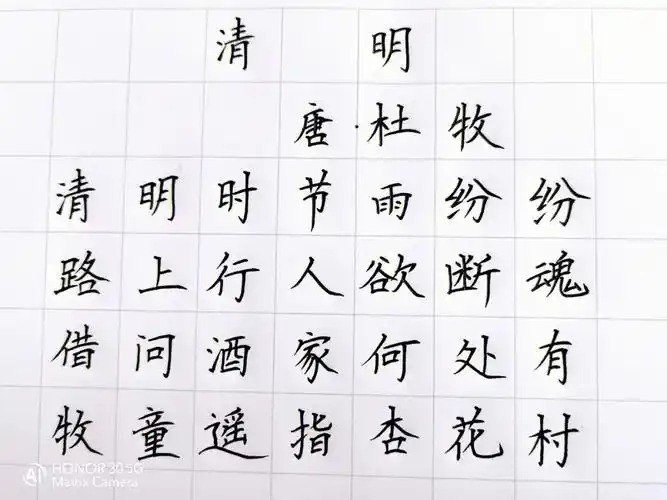 清明
唐·杜牧
清明时节雨纷纷
路上行人欲断魂
借问酒家何处有
牧童遥指杏花村
HONOR 30 5G
Matrix Camera